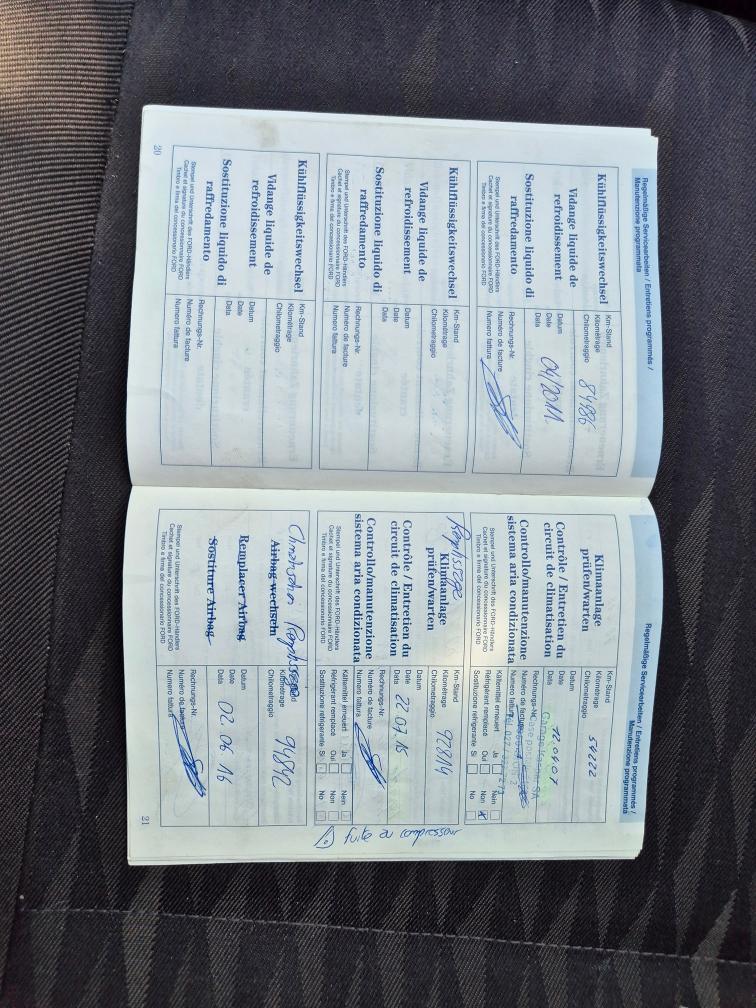 Regelmäßige Servicearbeiten / Entretiens programmés /
Manutenzione programmata
Kühlflüssigkeitswechsel
Vidange liquide de
refroidissement
Sostituzione liquido di
raffredamento
Stempel und Unterschrift des FORD-Händlers
Cachet et signature du concessionnaire FORD
Timbro e firma del concessionario FORD
Km-Stand
Kilométrage
Chilometraggio
84986
Datum
Date
Data
04/2011
Rechnungs-Nr.
Numéro de facture
Numero fattura
Kühlflüssigkeitswechsel
Vidange liquide de
refroidissement
Sostituzione liquido di
raffredamento
Stempel und Unterschrift des FORD-Händlers
Cachet et signature du concessionnaire FORD
Timbro e firma del concessionario FORD
Km-Stand
Kilométrage
Chilometraggio
Datum
Date
Data
Rechnungs-Nr.
Numéro de facture
Numero fattura
Kühlflüssigkeitswechsel
Vidange liquide de
refroidissement
Sostituzione liquido di
raffredamento
Stempel und Unterschrift des FORD-Händlers
Cachet et signature du concessionnaire FORD
Timbro e firma del concessionario FORD
Km-Stand
Kilométrage
Chilometraggio
Datum
Date
Data
Rechnungs-Nr.
Numéro de facture
Numero fattura
20
Regelmäßige Servicearbeiten / Entretiens programmés /
Manutenzione programmata
Klimaanlage
prüfen/warten
Contrôle / Entretien du
circuit de climatisation
Controllo/manutenzione
sistema aria condizionata
Stempel und Unterschrift des FORD-Händlers
Cachet et signature du concessionnaire FORD
Timbro e firma del concessionario FORD
Km-Stand
Kilométrage
Chilometraggio
54222
Datum
Date
Data
Rechnungs-Nr.
Numéro de facture
Numero fattura
Kältemittel erneuert Ja Nein
Réfrigérant remplacé Oui Non x
Sostituzione réfrigerante Si No
Remplissage
Klimaanlage
prüfen/warten
Contrôle / Entretien du
circuit de climatisation
Controllo/manutenzione
sistema aria condizionata
Stempel und Unterschrift des FORD-Händlers
Cachet et signature du concessionnaire FORD
Timbro e firma del concessionario FORD
Km-Stand
Kilométrage
Chilometraggio
92814
Datum
Date
Data
22.07.15
Rechnungs-Nr.
Numéro de facture
Numero fattura
Kältemittel erneuert Ja Nein
Réfrigérant remplacé Oui Non
Sostituzione réfrigerante Si No
compresseur
Climatisation Remplissage
Airbag wechseln
Remplacer Airbag
Sostiture Airbag
Stempel und Unterschrift des FORD-Händlers
Cachet et signature du concessionnaire FORD
Timbro e firma del concessionario FORD
Kilométrage
Chilometraggio
94842
Datum
Date
Data
02.06.16
Rechnungs-Nr.
Numéro de facture
Numero fattura
21